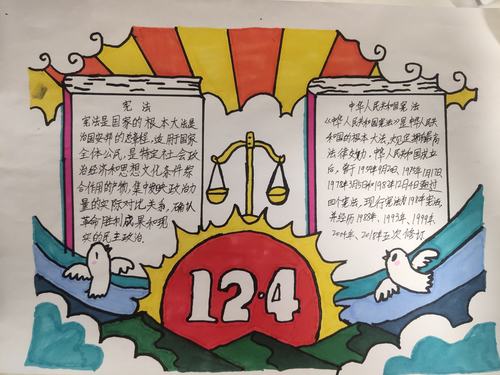 宪法
宪法是国家的根本大法是
治国安邦的总章程,适用于国家
全体公民,是特定社会政
治经济和思想文化条件综
合作用的产物,集中反映政治力
量的实际对比关系,确认
革命胜利成果和现
实的民主政治.
中华人民共和国宪法
《中华人民共和国宪法》是中华人民共
和国的根本大法,规定拥有最高
法律效力.中华人民共和国成立
后,曾于1954年9月20日、1975年1月17日
1978年3月5日和1982年12月4日通过
四个宪法,现行宪法为1982年宪法,
并经历1988年、1993年、1999年、
2004年、2018年五次修订
12·4